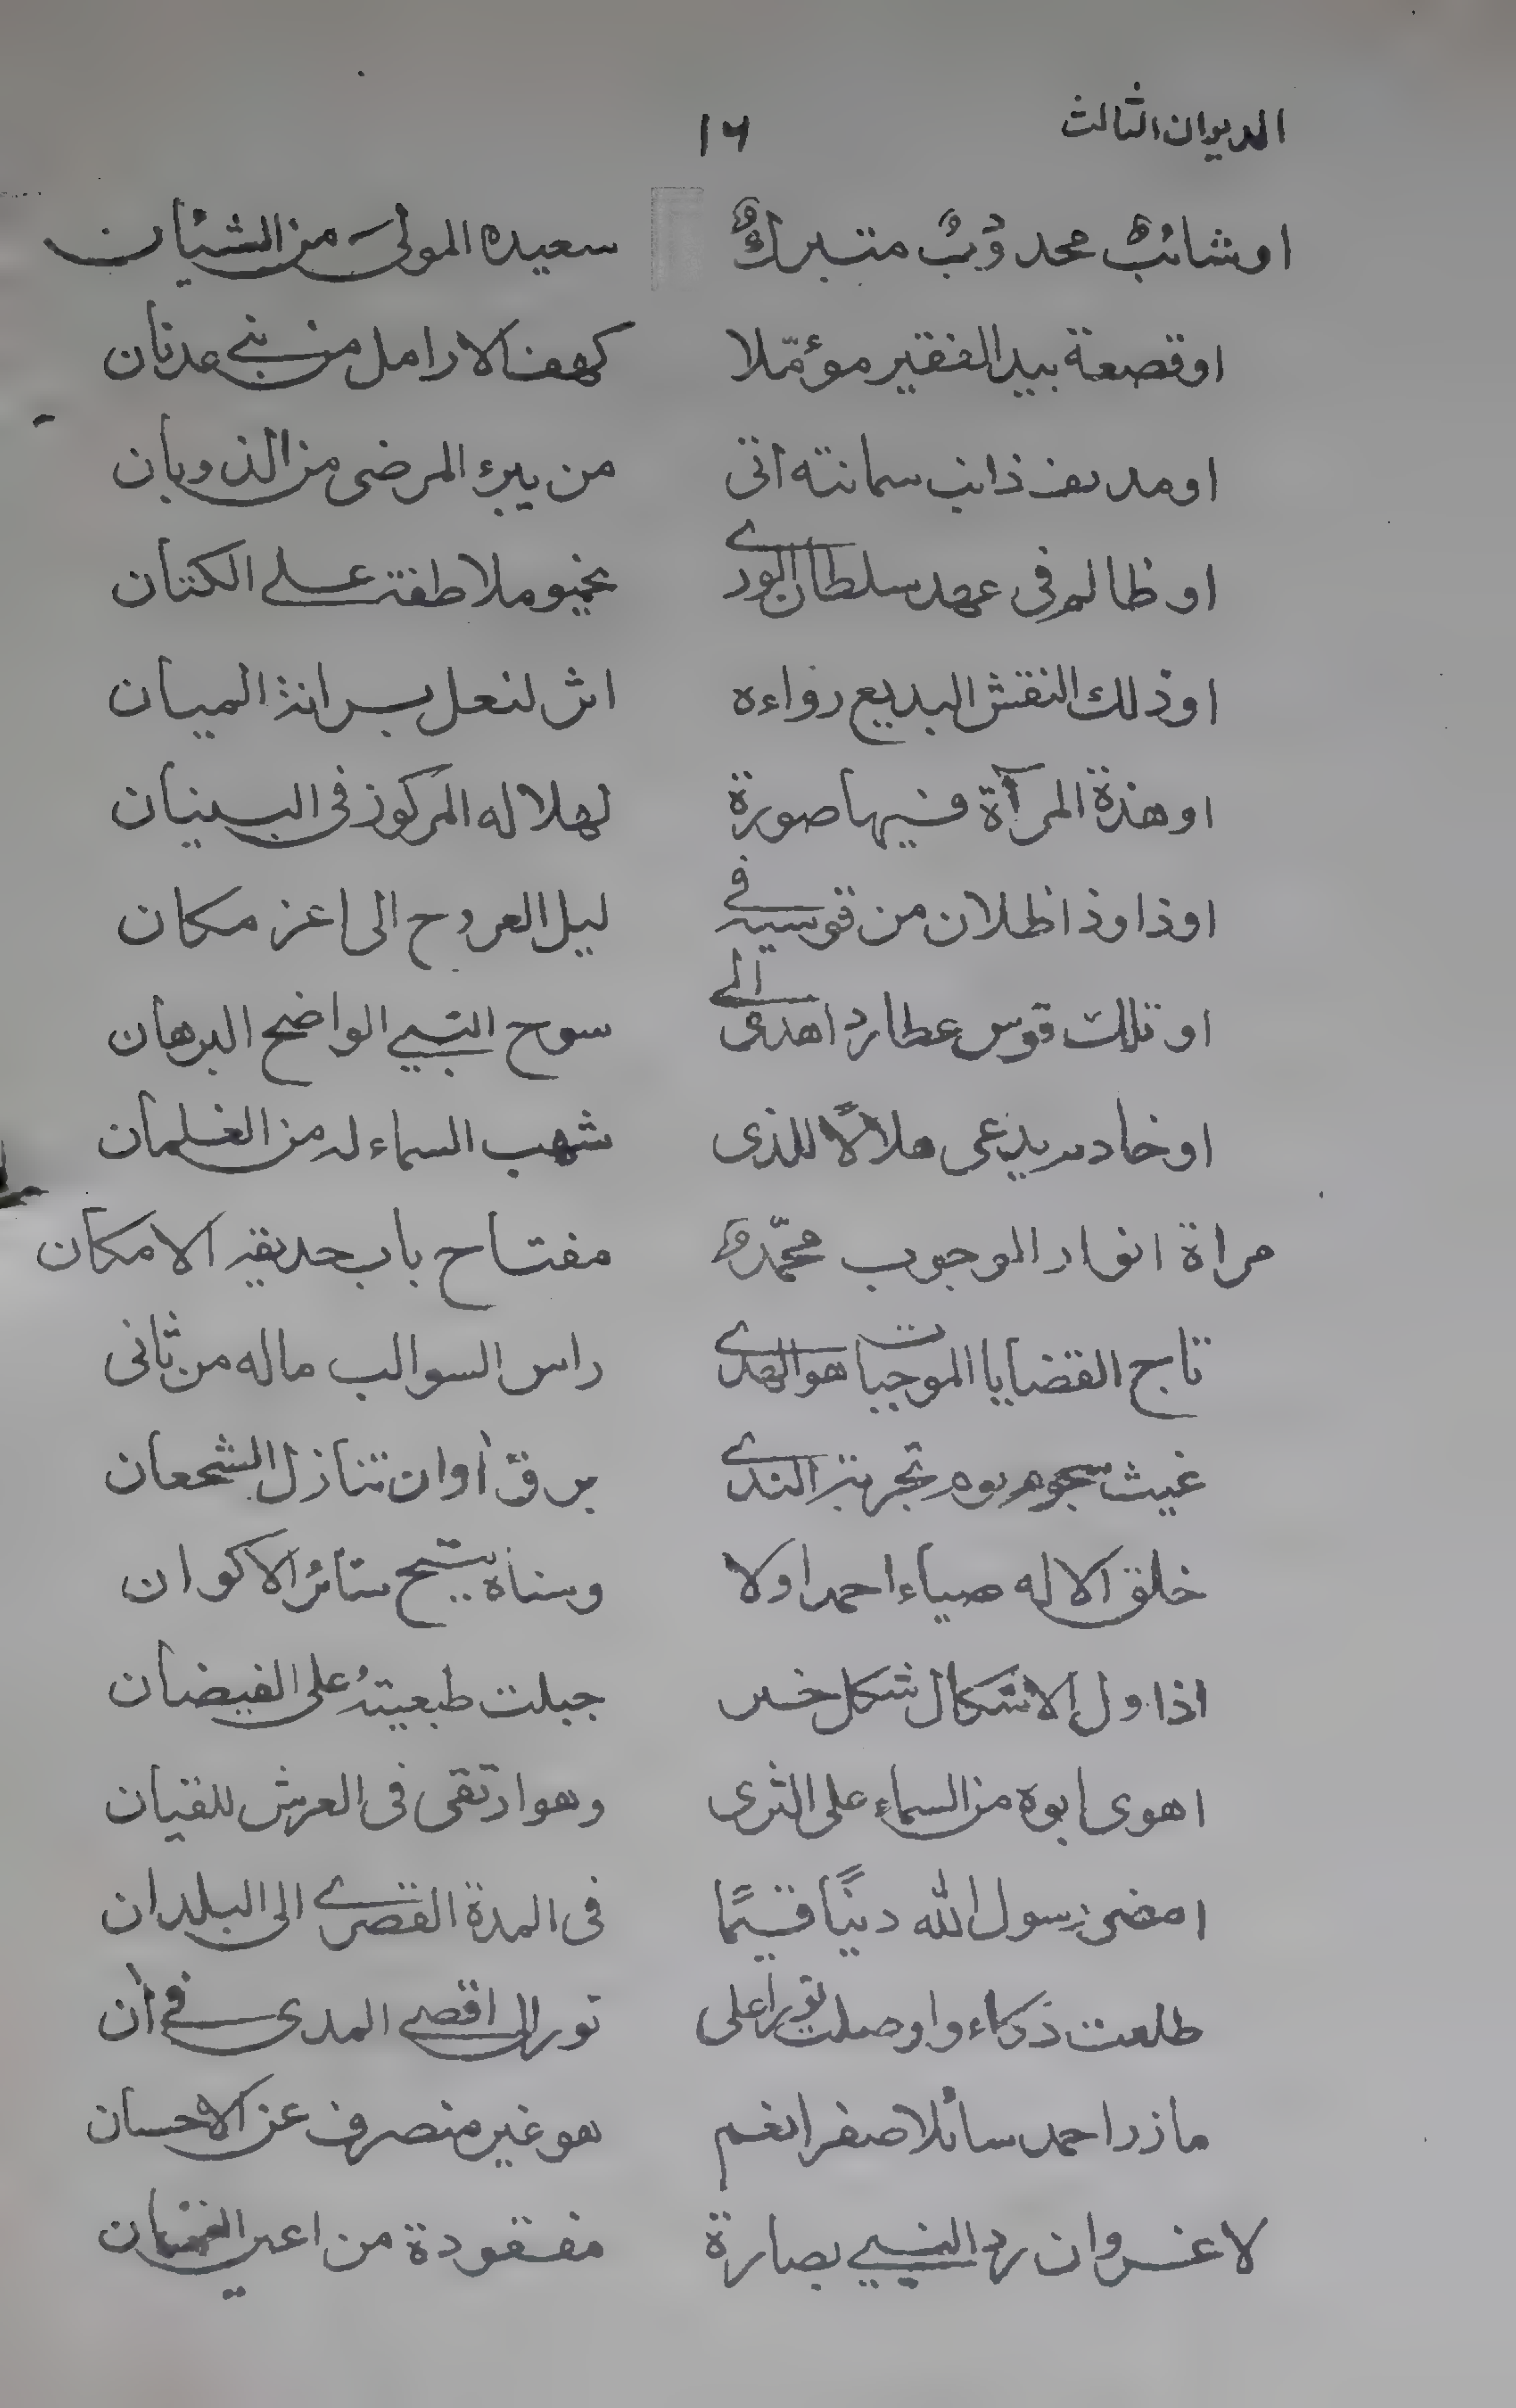 الديوان الثالث ١٦
اوشائبٌ محدودبٌ متبركٌ سعيده المولى من الشيان
اوقصعة بيد الفقير مؤمّلا كهف الارامل من بني عدنان
اومدنف ذائب سمانته اتى من يبرء المرضى من الذوبان
اوظالم فى عهد سلطان الورى يخبو ملاطفة على الكتان
اوذلك النقش البديع رواءه اثر لنعل برانذ الميان
اوهذة المرآة فيها صورة لهلاله المركوز فى البنيان
اوذا وذا ظلان من قوسيه فى ليل العروج الى اعز مكان
اوتلك قوس عطارد اهدى الى سوح النبي الواضح البرهان
اوخادم يدعى هلالاً للذى شهب السماء له من الغلمان
مراة انوار الوجوب محمّد مفتاح باب حديقة الامكان
تاج القضايا الموجبات هو الهدى راس السوالب ماله من ثانى
غيث سجوم يوم تجربة الندى برق أوان تنازل الشجعان
خلق الاله ضياء احمد اولا وسناه يتيح ستائر الاكوان
اذ اول الاشكال شكل خير جبلت طبعيتهُ على الفيضان
اهوى ابوه من السماء على الثرى وهو ارتقى فى العرش للقيان
امضى رسول الله دينًا قيمًا فى المدة القصرى الى البلدان
طلعت ذكاء واوصلت نورا على نور الى اقصى المدى فى أن
مازر احمد سائلا صفرا نعم هو غير منصرف عن الاحسان
لاغرو ان رد النبي بصارة مفقودة من اعين